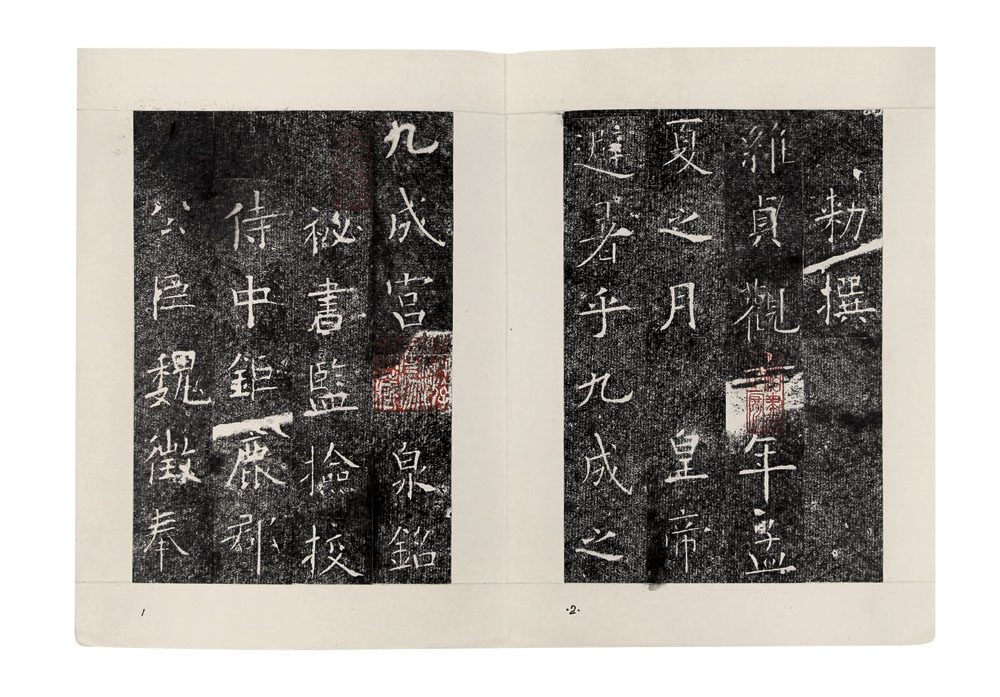 九成宮 泉銘
祕書監撿挍
侍中鉅鹿郡
公臣魏徵奉
1
勑撰
維貞觀 年孟
夏之月 皇帝
避暑乎九成之
·2·